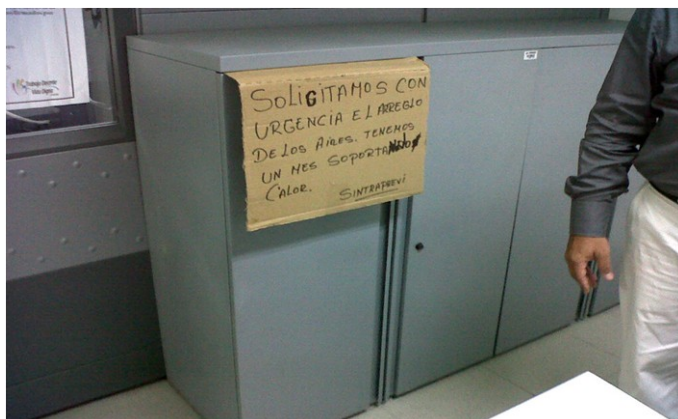 SOLIGITAMOS CON
URGENCIA EL ARREGLO
DE LOS AIRES. TENEMOS
UN MES SOPORTANDO
CALOR.
SINTRAPREVI